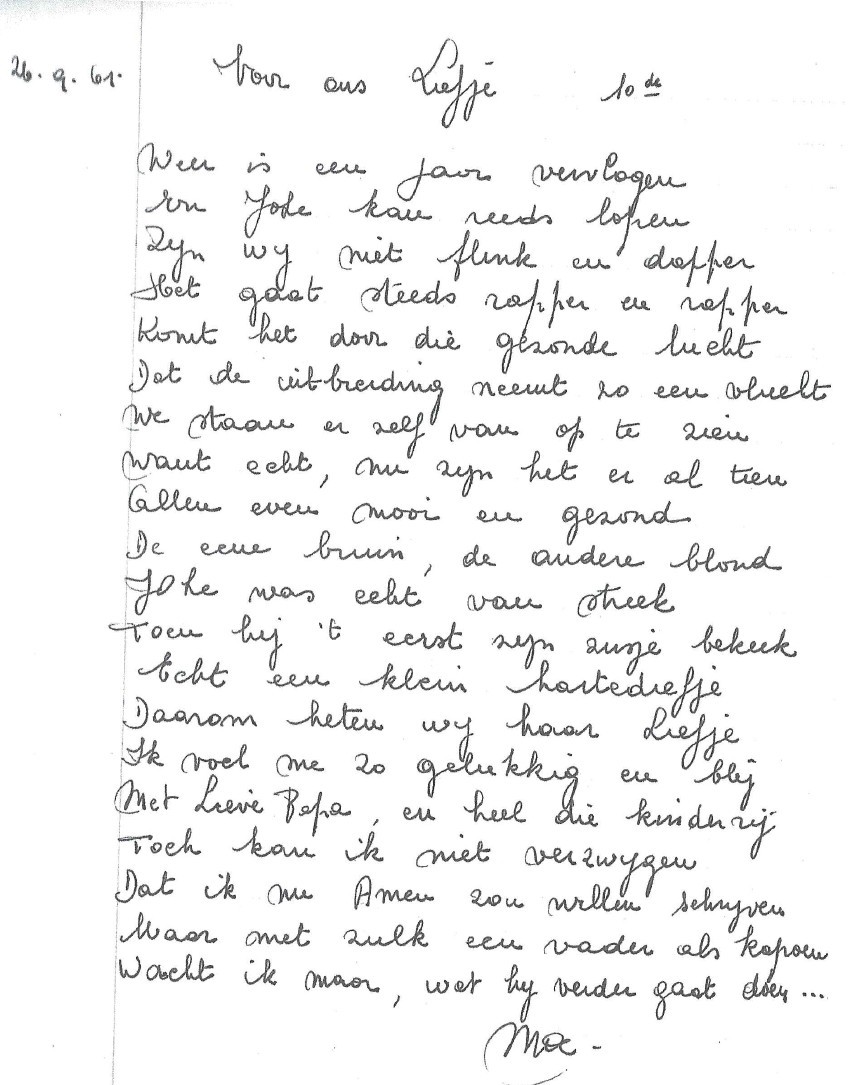 26.9.61. Voor ons Liefje 10de
Weer is een jaar vervlogen
En Joke kan reeds lopen
Zyn wy niet flink en dapper
Het gaat steeds rapper en rapper
Komt het door die gezonde lucht
Dat de uitbreiding neemt zo een vlucht
We staan er zelf van op te zien
Want echt, nu zyn het er al tien
Allen even mooi en gezond
De eene bruin, de andere blond
Joke was echt van streek
Toen hij 't eerst zyn zusje bekeek
Echt een klein hartediefje
Daarom heten wy haar Liefje
Ik voel me zo gelukkig en blij
Met Lieve Bepa, en heel die kinderrij
Toch kan ik niet verzwygen
Dat ik nu Amen zou willen schryven
Maar met zulk een vader als kapoen
Wacht ik maar, wat hy verder gaat doen...
Moe -